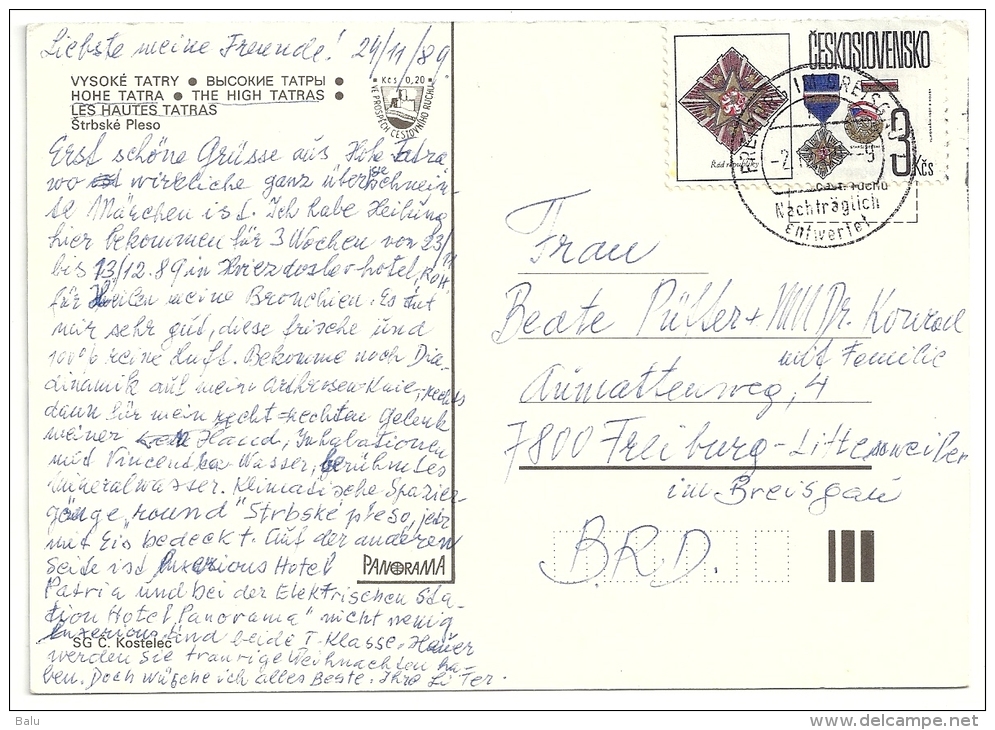 Liebste meine Freunde! 24/11/89
VYSOKÉ TATRY ● ВЫСОКИЕ ТАТРЫ ●
HOHE TATRA ● THE HIGH TATRAS ●
LES HAUTES TATRAS
Štrbské Pleso
Kčs 0,20
VE PROSPĚCH CESTOVNÍHO RUCHU
Erst schöne Grüsse aus Hohe Tatra
wo wirkliche ganz überschnein-
te Märchen ist. Ich habe Heilung
hier bekommen für 3 Wochen von 23/11
bis 13/12.89 in Hviezdoslav-hotel,
für Heilen meine Bronchien. Es tut
mir sehr gut, diese frische und
100% reine Luft. Bekomme noch Dia-
dinamik auf mein Arthrosen-Knie, rechts
dann für mein recht-rechten Gelenk
meiner Hand, Inhalationen
mit Vincentka-Wasser, berühmtes
Mineralwasser. Klimatische Spazier-
gänge „round" Strbské pleso, jetz
mit Eis bedeckt. Auf der anderen
Seite ist Luxerious Hotel
Patria und bei der Elektrischen Sta-
tion Hotel „Panorama" nicht wenig
luxerious. Sind beide I-Klasse. Heuer
werden Sie traurige Weihnachten ha-
ben. Doch wünsche ich alles Beste. Ihre
PANORAMA
SG Č. Kostelec
ČESKOSLOVENSKO
Řád republiky
3 Kčs
FREIBURG IM BREISGAU
Nachträglich
entwertet
Frau
Beate Pütter + MUDr. Konrad
mit Familie
Aumattenweg, 4
7800 Freiburg-Littenweiler
im Breisgau
B.R.D.
Balu
delcampe.net